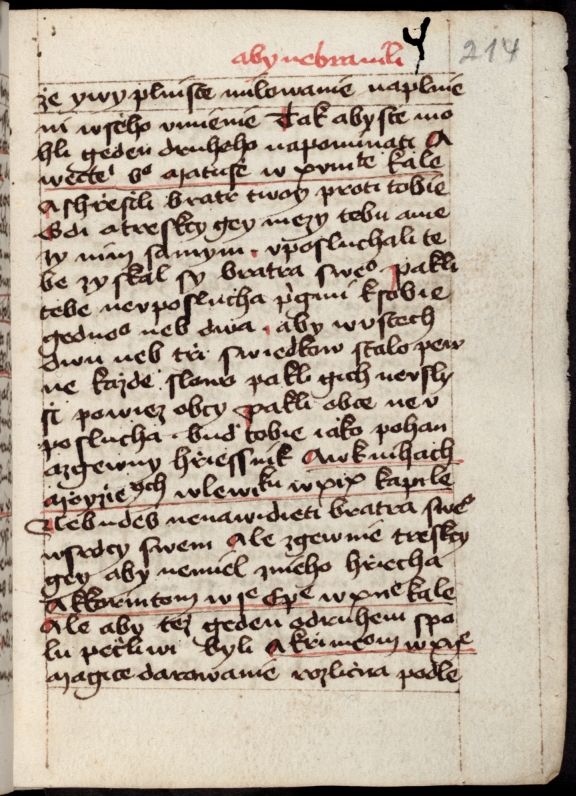 aby nebranili
214
že y wy plni ste milowanie naplnie
ni wseho vmienie Tak abyste mo
hli geden druheho napominati A
wecte bo Matuss w xviii kale
A shřesili bratr twoy proti tobie
Gdi a treskcy gey mezy tebu a me
zy nim samym. vposluchali te
be zyskal sy bratra sweo pakli
tebe nevposlucha přgmi k sobie
gednoo neb dwa. aby w vstech
dwu neb tří swiedkow stalo pew
ne každe slowo pakli gich nevsly
ssi powiez obcy Pakli obce ne v
poslucha. bud tobie iako pohan
a zgewny hřiessnik A w knihach
Moyziessowych w lewiku w xix kapitle
Nebudes nenawidieti bratra sweo
w srdcy swem Ale zgewnie treskcy
gey aby nemiel znieho hřiecha
A k korintom w je Epe w xii kale
Ale aby tez geden o druhem spo
lu pečliwi byli A k řimanom w xije
Magice darowanie rozlična podle